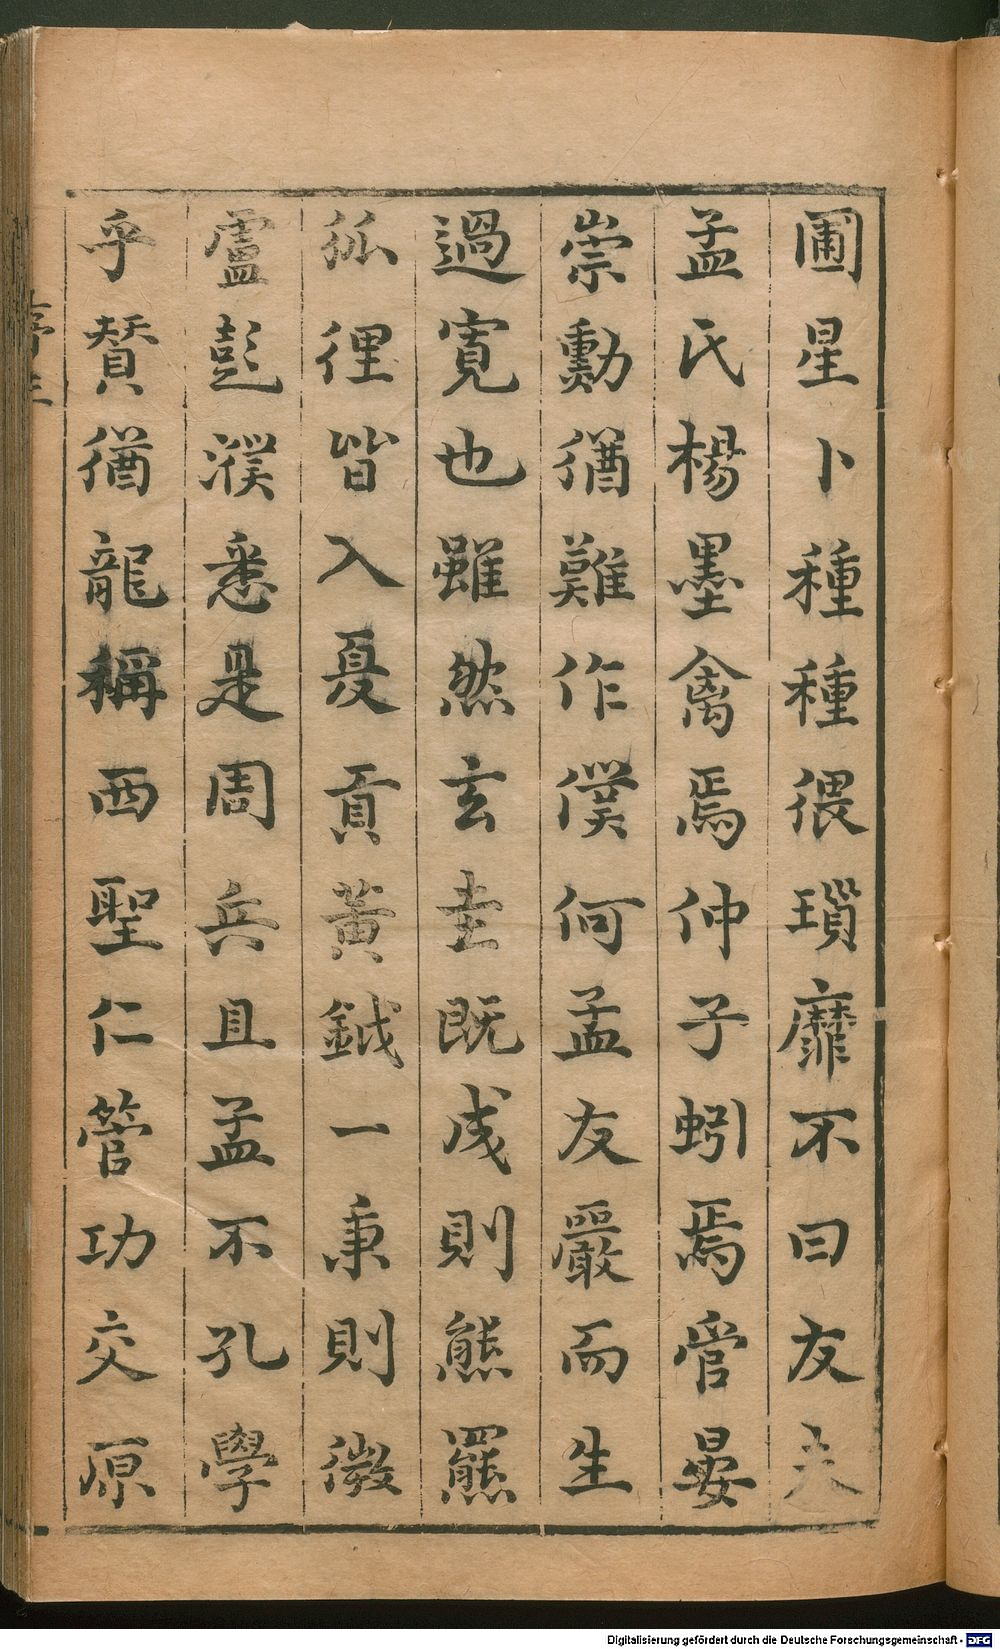 圃星卜種種猥瑣靡不曰友夫
孟氏楊墨禽焉仲子蚓焉管晏
崇勳猶難作僕何孟友嚴而生
過寬也雖然玄圭既成則熊羆
狐狸皆入戛貢黃鉞一秉則微
盧彭濮悉是周兵且孟不孔學
乎賛猶龍稱西聖仁管功交原
Digitalisierung gefördert durch die Deutsche Forschungsgemeinschaft - DFG